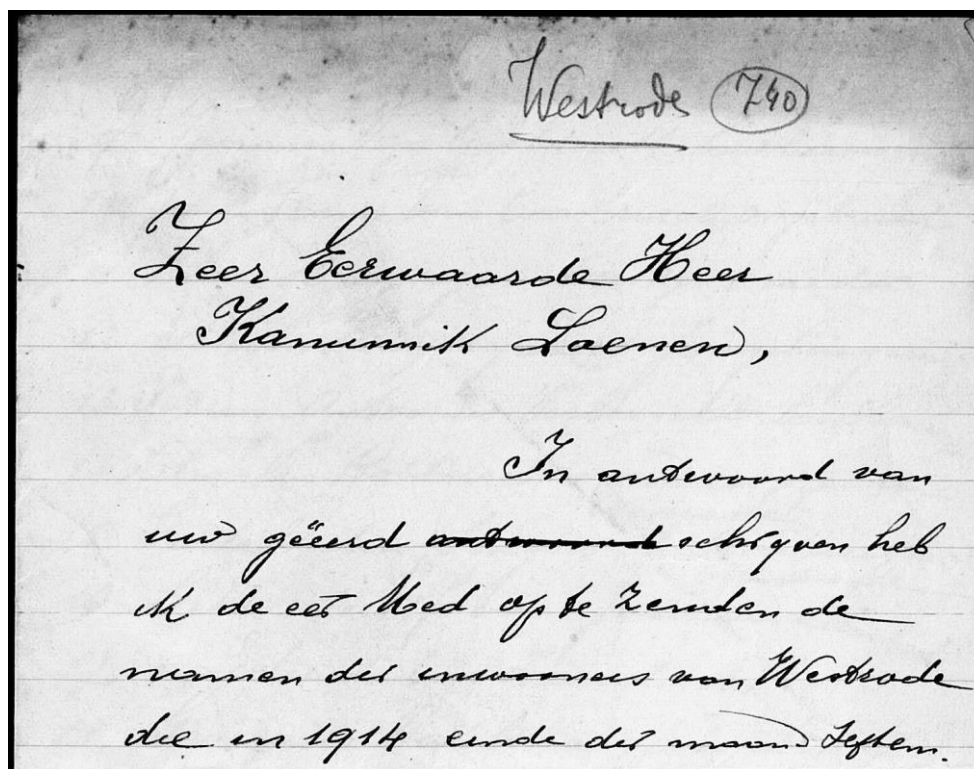 Westrode 740
Zeer Eerwaarde Heer
Kanunnik Laenen,
In antwoord van
uw geëerd antwoord schrijven heb
ik de eer UEed op te zenden de
namen der inwooners van Westrode
die in 1914 einde der maand Septem.